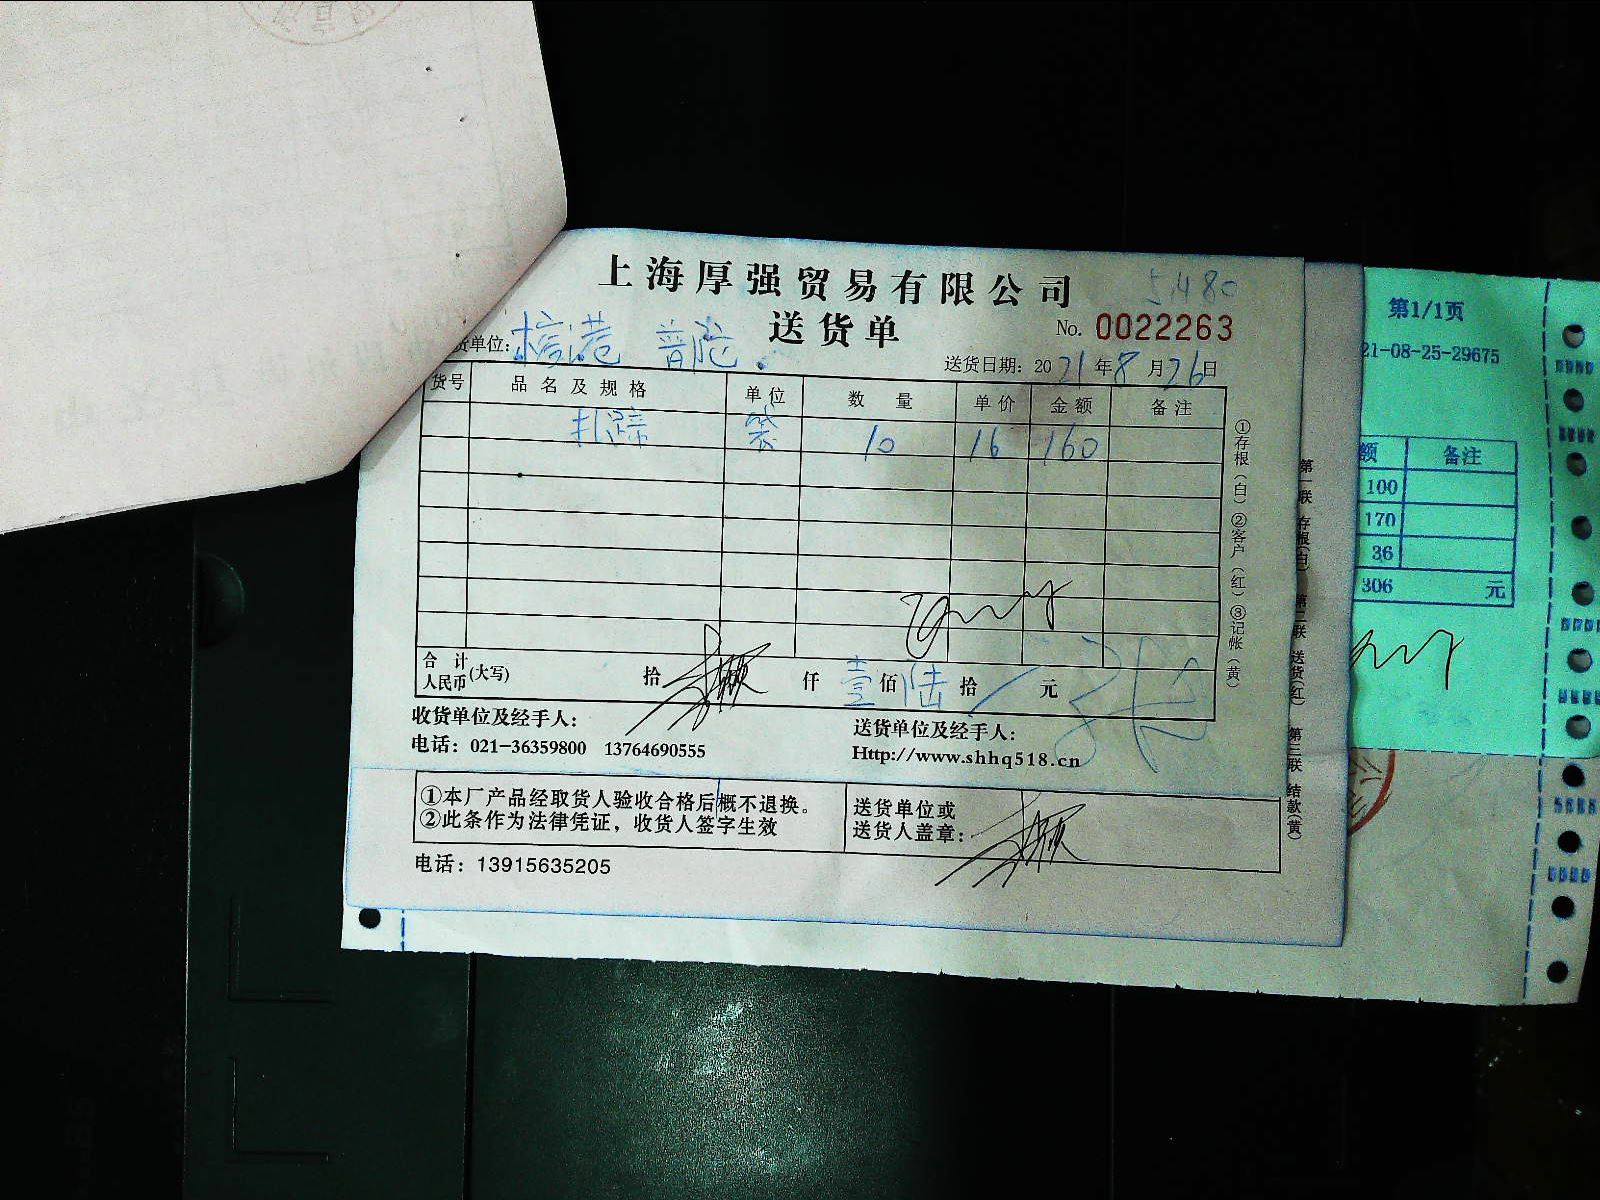 上海厚强贸易有限公司
5480
送货单
No. 0022263
货单位: 港 普陀
送货日期: 2021年8月26日
货号 品名及规格 单位 数量 单价 金额 备注
扎蹄 袋 10 16 160
合计人民币(大写) 拾 仟 壹佰陆拾 元
收货单位及经手人:
送货单位及经手人:
电话: 021-36359800 13764690555
Http://www.shhq518.cn
①存根(白)②客户(红)③记帐(黄)
①本厂产品经取货人验收合格后概不退换。
②此条作为法律凭证，收货人签字生效
送货单位或
送货人盖章:
电话: 13915635205
第一联 存根(白) 第二联 送货(红) 第三联 结款(黄)
第1/1页
21-08-25-29675
额 备注
100
170
36
306 元